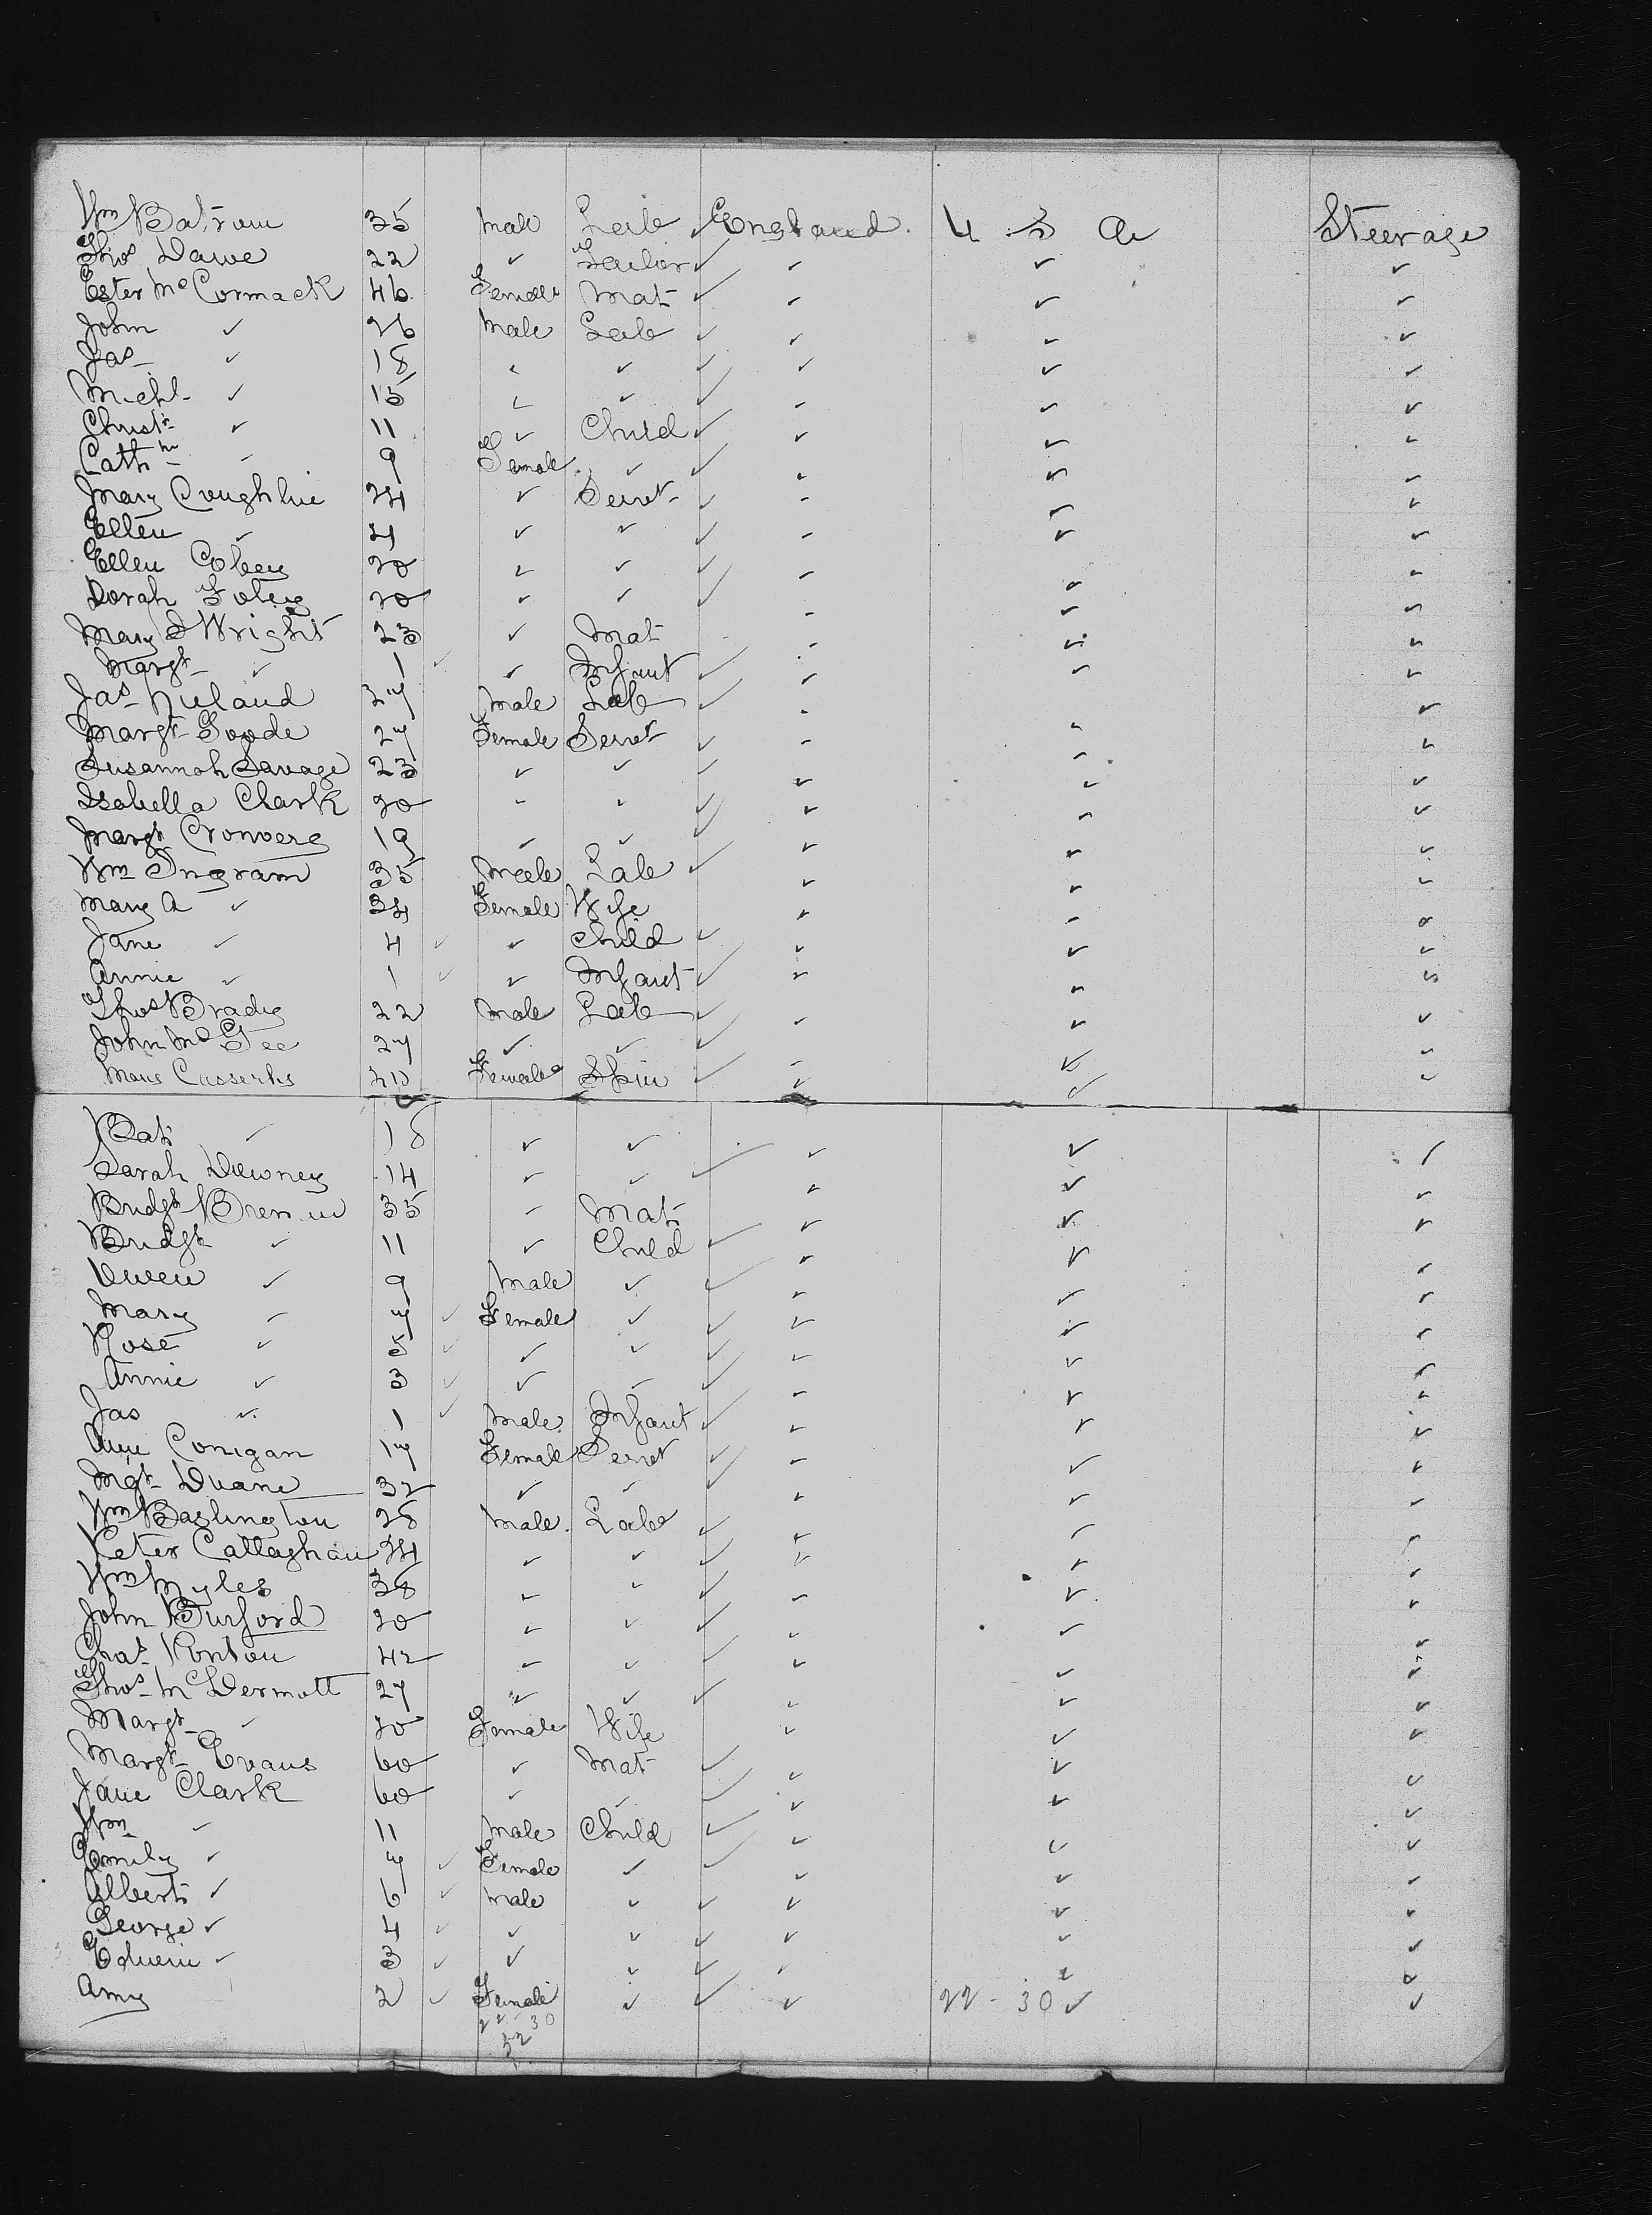 Wm Batram 35 Male Lab ✓ England. U S A Steerage
Thos Dawe 22 ✓ Tailor ✓ ✓ ✓ ✓
Ester McCormack 46 Female Mat ✓ ✓ ✓ ✓
John ✓ 26 Male Lab ✓ ✓ ✓ ✓
Jas ✓ 18 ✓ ✓ ✓ ✓ ✓ ✓
Michl ✓ 15 ✓ ✓ ✓ ✓ ✓ ✓
Christr ✓ 11 ✓ Child ✓ ✓ ✓ ✓
Cathne ✓ 9 Female ✓ ✓ ✓ ✓ ✓
Mary Coughlin 24 ✓ Servt ✓ ✓ ✓ ✓
Ellen ✓ 21 ✓ ✓ ✓ ✓ ✓ ✓
Ellen Coley 20 ✓ ✓ ✓ ✓ ✓ ✓
Dorah Foley 20 ✓ ✓ ✓ ✓ ✓ ✓
Mary Wright 23 ✓ Mat ✓ ✓ ✓
Margt ✓ 1 ✓ ✓ Infant ✓ ✓ ✓ ✓
Jas 27 Male Lab ✓ ✓ ✓ ✓
Margt Goode 27 Female Servt ✓ ✓ ✓ ✓
Susannah Savage 23 ✓ ✓ ✓ ✓ ✓ ✓
Isabella Clark 20 ✓ ✓ ✓ ✓ ✓ ✓
Margt 19 ✓ ✓ ✓ ✓ ✓
Wm Ingram 35 Male Lab ✓ ✓ ✓ ✓
Mary A ✓ 34 Female Wife ✓ ✓ ✓
Jane ✓ 4 ✓ ✓ Child ✓ ✓ ✓ ✓
Annie ✓ 1 ✓ ✓ Infant ✓ ✓ ✓ ✓
Thos Brady 22 Male Lab ✓ ✓ ✓ ✓
John McGee 27 ✓ ✓ ✓ ✓ ✓ ✓
Female Spin ✓ ✓ ✓ ✓
Pat ✓ 18 ✓ ✓ ✓ ✓ ✓
Sarah Downey 14 ✓ ✓ ✓ ✓ ✓ ✓
Bridgt 35 ✓ Mat ✓ ✓ ✓
Bridgt ✓ 11 ✓ Child ✓ ✓ ✓ ✓
Owen ✓ 9 Male ✓ ✓ ✓ ✓ ✓
Mary ✓ 7 ✓ Female ✓ ✓ ✓ ✓ ✓
Rose ✓ 5 ✓ ✓ ✓ ✓ ✓ ✓ ✓
Annie ✓ 3 ✓ ✓ ✓ ✓ ✓ ✓ ✓
Jas ✓ 1 ✓ Male Infant ✓ ✓ ✓ ✓
Ann Conigan 17 Female Servt ✓ ✓ ✓ ✓
Mgt Duane 32 ✓ ✓ ✓ ✓ ✓
Wm Baglington 28 Male Lab ✓ ✓ ✓ ✓
Peter Callaghan 24 ✓ ✓ ✓ ✓ ✓ ✓
Wm Myles 38 ✓ ✓ ✓ ✓ ✓ ✓
John Burford 20 ✓ ✓ ✓ ✓ ✓ ✓
Chas Ponton 42 ✓ ✓ ✓ ✓ ✓ ✓
Thos McDermott 27 ✓ ✓ ✓ ✓ ✓ ✓
Margt ✓ 20 Female Wife ✓ ✓ ✓
Margt Evans 60 ✓ Mat ✓ ✓ ✓ ✓
Jane Clark 60 ✓ ✓ ✓ ✓ ✓ ✓
Wm ✓ 11 Male Child ✓ ✓ ✓ ✓
Emily ✓ 7 ✓ Female ✓ ✓ ✓ ✓
Albert ✓ 6 ✓ Male ✓ ✓ ✓ ✓ ✓
George ✓ 4 ✓ ✓ ✓ ✓ ✓ ✓ ✓
Edwin ✓ 3 ✓ ✓ ✓ ✓ ✓ ✓ ✓
Amy 2 ✓ Female ✓ ✓ ✓ 22 - 30 ✓ ✓
22 - 30
52